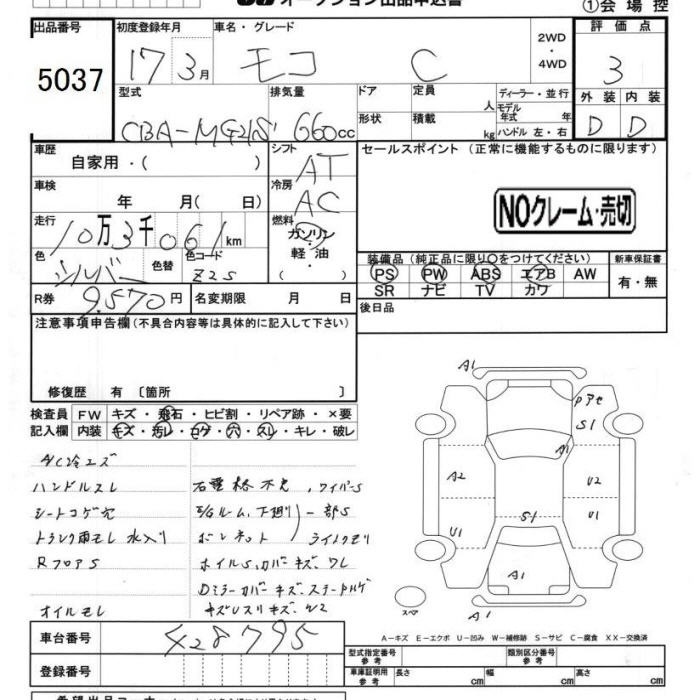 オークション出品申込書
①会場控
出品番号 5037
初度登録年月 17 3月
車名・グレード モコ C
2WD ・ 4WD
評価点 3
型式 CBA-MG21S
排気量 660cc
ドア
形状
定員 人
積載 kg
ディーラー・並行
モデル年式 年
ハンドル 左・右
外装 D
内装 D
車歴 自家用・( )
シフト AT
セールスポイント (正常に機能するものに限ります)
車検 年 月( 日)
冷房 AC
NOクレーム・売切
走行 10万3千061km
燃料 ガソリン・軽油・( )
色 シルバー
色替
色コード Z2S
装備品 (純正品に限り○をつけてください)
PS PW ABS エアB AW
SR ナビ TV カワ
新車保証書 有・無
R券 9.570円
名変期限 月 日
後日品
注意事項申告欄 (不具合内容等は具体的に記入して下さい)
修復歴 有 〔箇所 〕
検査員記入欄
FW キズ・飛石・ヒビ割・リペア跡・×要
内装 キズ・汚レ・コゲ・穴・スレ・キレ・破レ
A/C冷エズ
ハンドルスレ
シートコゲ穴
トランク雨モレ 水入リ
RフロアS
オイルモレ
ワイパーS
下廻リ
一部S
ボンネット
ライトクモリ
ホイルS、カバーキズ、ワレ
Dミラーカバーキズ
A1
S1
A2
U2
U1
U1
S1
A1
A1
スペア
A-キズ E-エクボ U-凹み W-補修跡 S-サビ C-腐食 XX-交換済
車台番号 428795
登録番号
型式指定番号 参考
類別区分番号 参考
車庫証明用 参考
長さ cm
幅 cm
高さ cm
希望出品コーナー